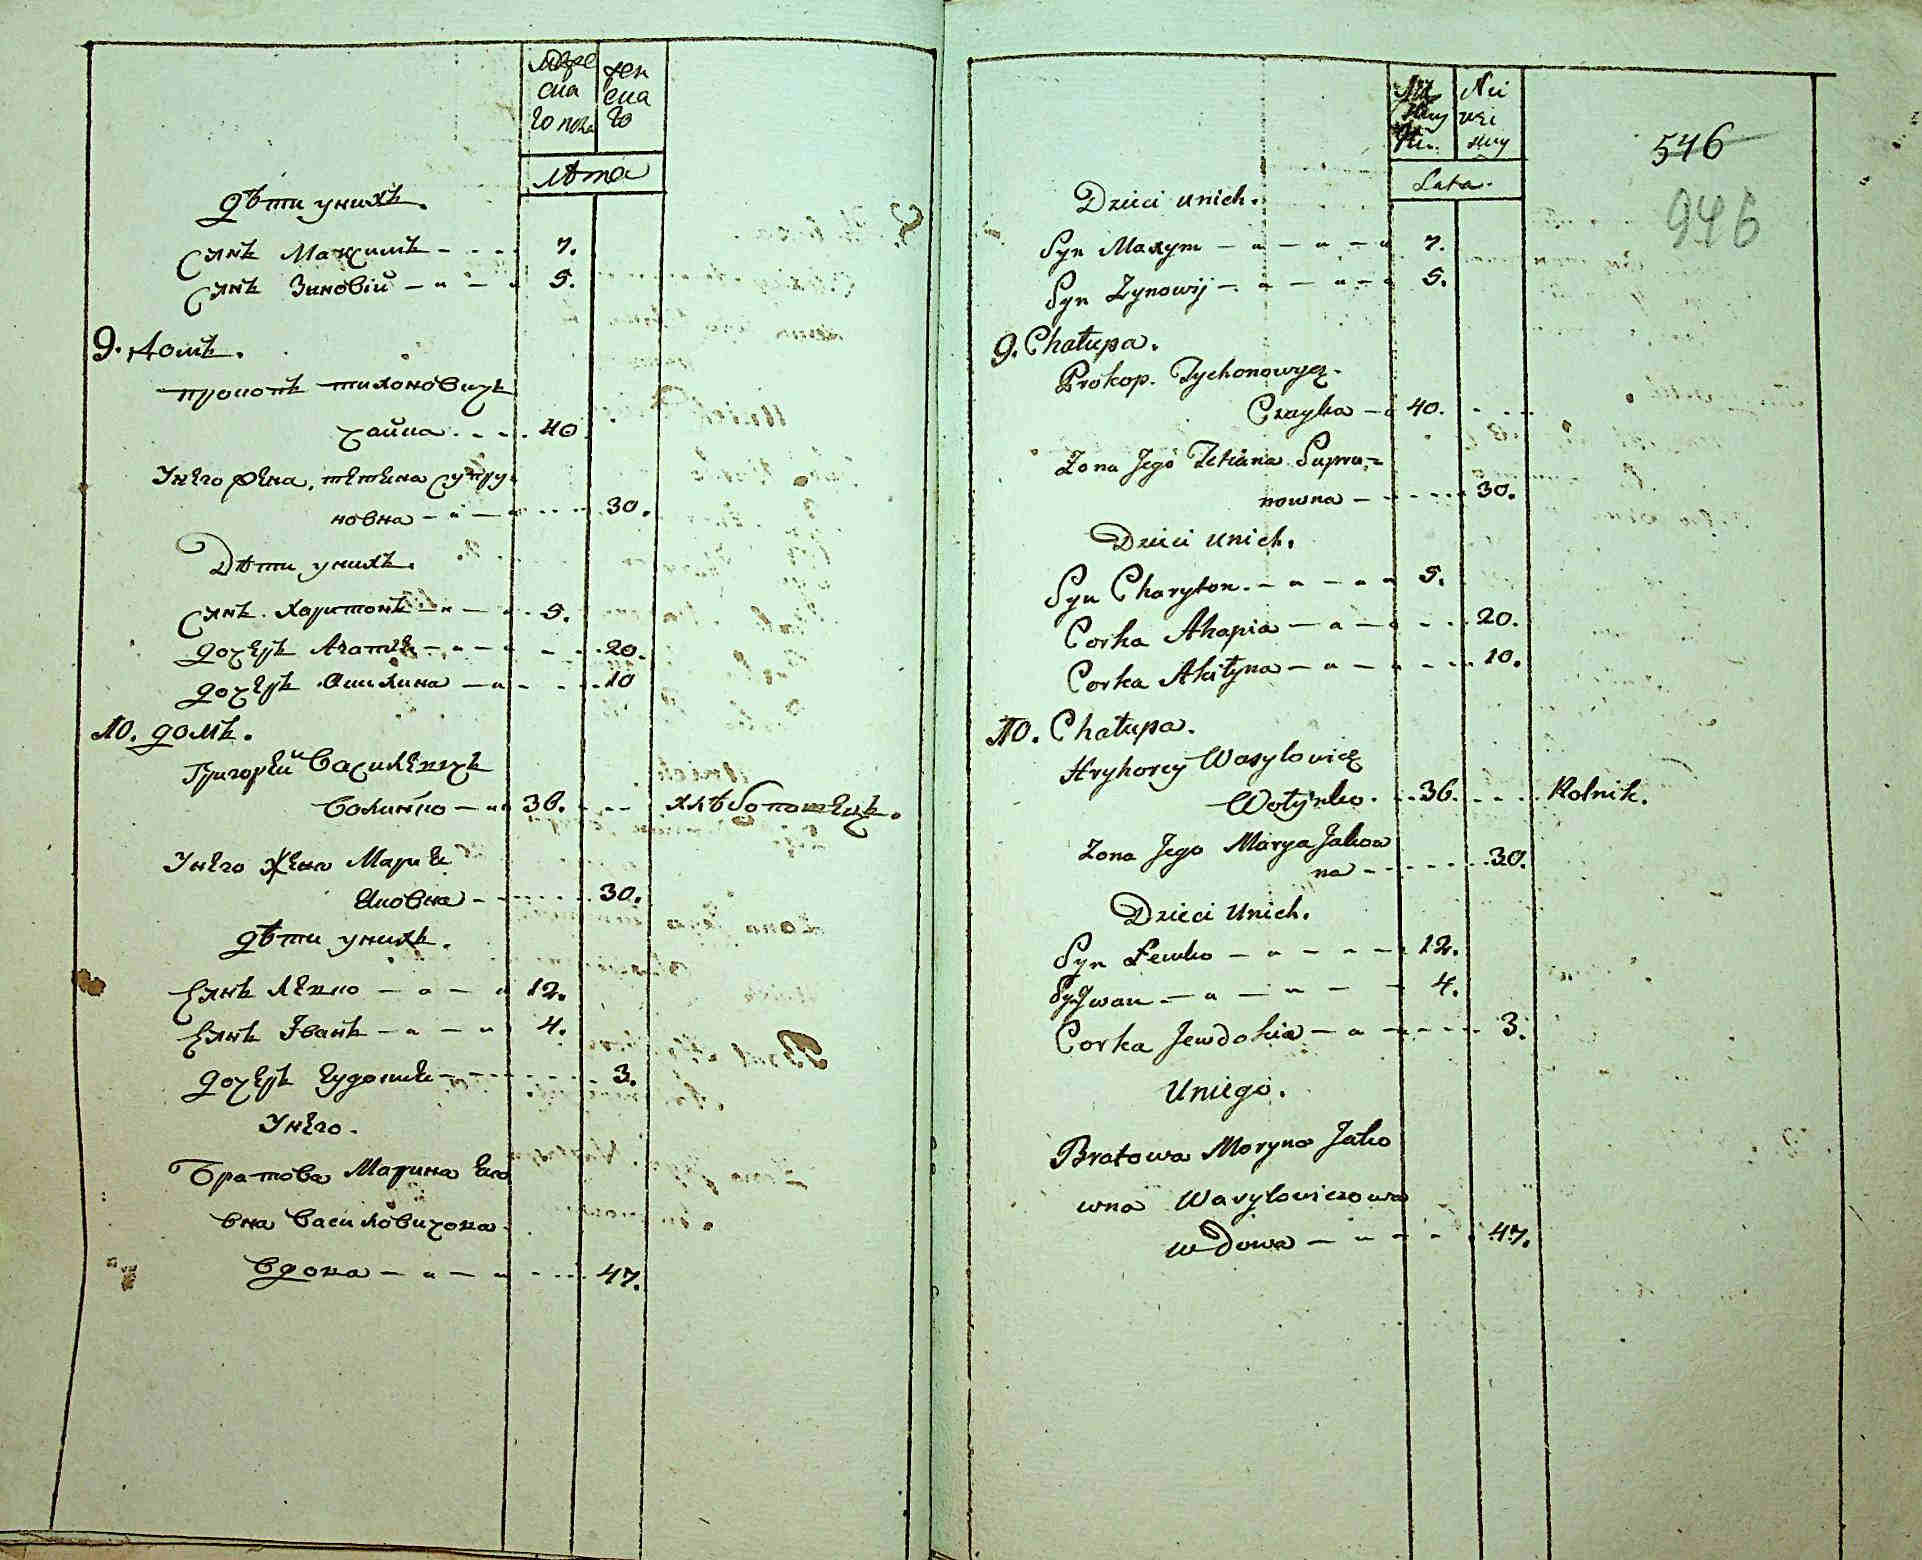 мужескаго пола
женскаго
лѣта
дѣти унихъ.
Сынъ Максимъ 7.
Сынъ Зиновій 5.
9. домъ.
прокопъ тихоновичъ
чайка 40
Унего жена, тетяна супру
новна 30.
Дѣти унихъ.
Сынъ Харитонъ 5.
дочерь Агапія 20.
дочерь Акилина 10
10. домъ.
Григорей Василевичъ
Волинко 36. хлѣбопашецъ.
Унего жена Мария
Яковна 30.
дѣти унихъ.
Сынъ Левко 12.
Сынъ Іванъ 4.
дочерь Еудокия 3.
Унего.
Братова Марина Яко
вна Василовичова
вдова 47.
Lata.
546
946
Dzieci unich.
Syn Maxym 7.
Syn Zynowij 5.
9. Chałupa.
Prokop. Tychonowycz.
Czayka 40.
Zona Jego Tetiana Supru=
nowna 30.
Dzieci unich.
Syn Charyton. 5.
Corka Ahapia 20.
Corka Akiłyna 10.
10. Chałupa.
Hryhorey Wasylowicz
Wołyńko. 36. Rolnik.
Zona Jego Marya Jakow
na 30.
Dzieci Unich.
Syn Lewko 12.
Syn Jwan 4.
Corka Jewdokia 3.
Uniego.
Bratowa Moryna Jako
wna Wasylowiczowa
wdowa 47.